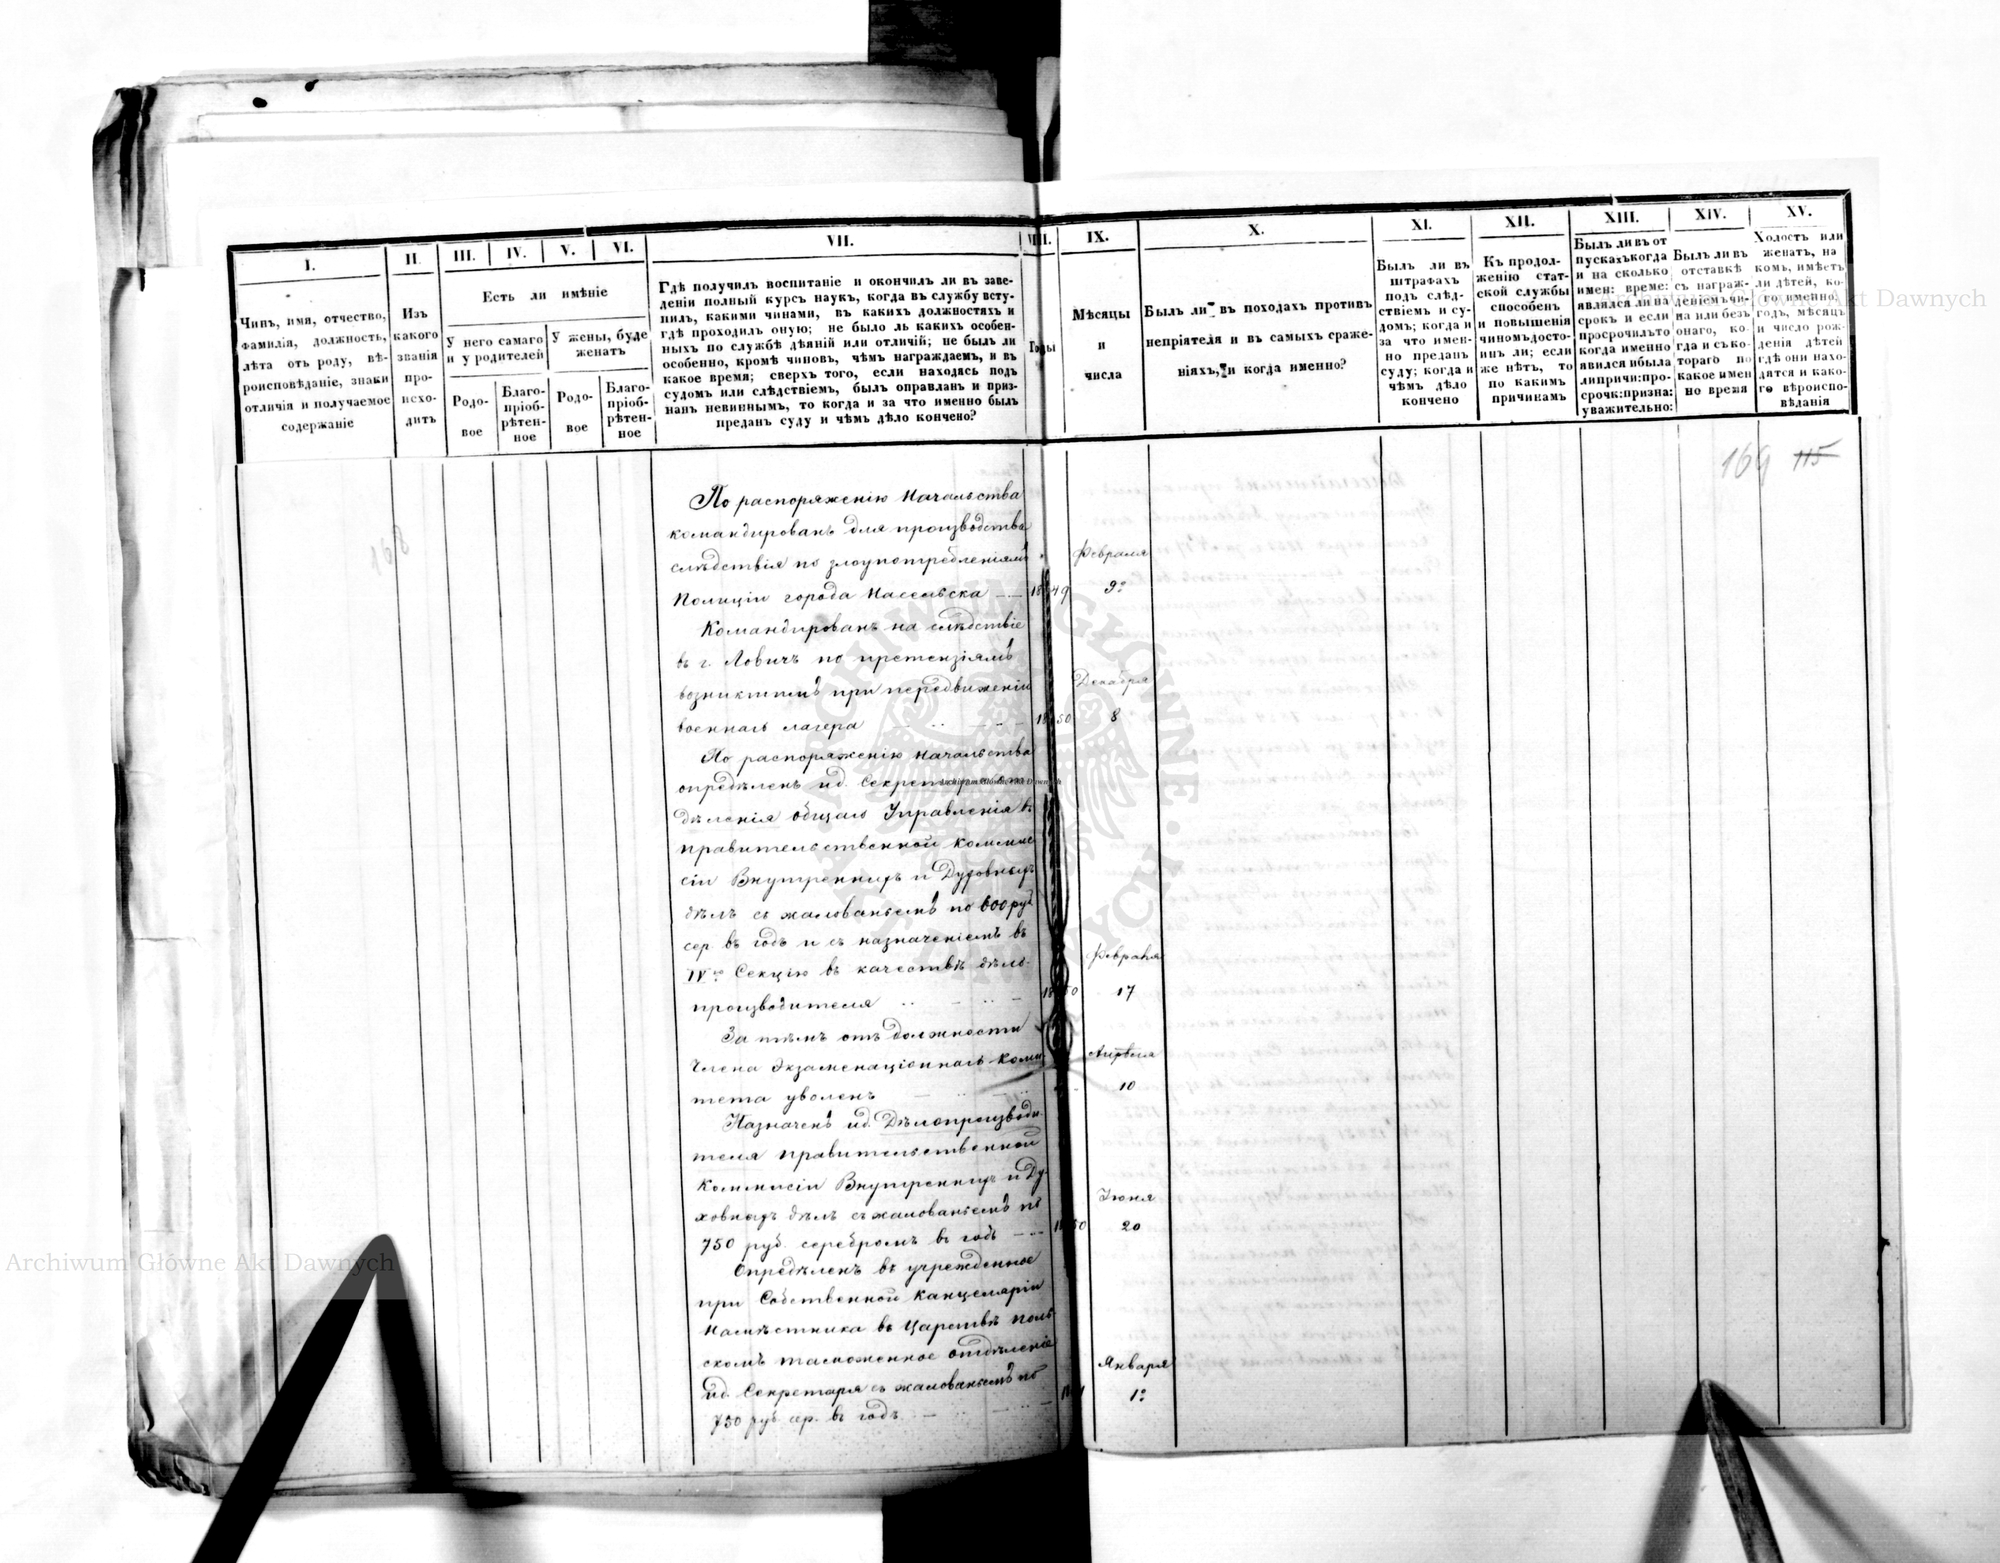 I.
Чинъ, имя, отчество,
фамилія, должность,
лѣта отъ роду, вѣ-
роисповѣданіе, знаки
отличія и получаемое
содержаніе
II.
Изъ
какого
званія
про-
исхо-
дитъ
III.
IV.
V.
VI.
Есть ли имѣніе
У него самаго
и у родителей
У жены, буде
женатъ
Родо-
вое
Благо-
пріоб-
рѣтен-
ное
Родо-
вое
Благо-
пріоб-
рѣтен-
ное
VII.
Гдѣ получилъ воспитаніе и окончилъ ли въ заве-
деніи полный курсъ наукъ, когда въ службу всту-
пилъ, какими чинами, въ какихъ должностяхъ и
гдѣ проходилъ оную; не было ль какихъ особен-
ныхъ по службѣ дѣяній или отличій; не былъ ли
особенно, кромѣ чиновъ, чѣмъ награждаемъ, и въ
какое время; сверхъ того, если находясь подъ
судомъ или слѣдствіемъ, былъ оправданъ и приз-
нанъ невиннымъ, то когда и за что именно былъ
преданъ суду и чѣмъ дѣло кончено?
VIII.
Годы
IX.
Мѣсяцы
и
числа
X.
Былъ ли въ походахъ противъ
непріятеля и въ самыхъ сраже-
ніяхъ, и когда именно?
XI.
Былъ ли въ
штрафахъ
подъ слѣд-
ствіемъ и су-
домъ; когда и
за что имен-
но преданъ
суду; когда и
чѣмъ дѣло
кончено
XII.
Къ продол-
женію стат-
ской службы
способенъ
и повышенія
чиномъ досто-
инъ ли; если
же нѣтъ, то
по какимъ
причинамъ
XIII.
Былъ ли въ от
пускахъ когда
и на сколько
имен: време:
явился ли на
срокъ и если
просрочилъ то
когда именно
явился и была
ли причи: про-
срочк: призна:
уважительно:
XIV.
Былъ ли въ
отставкѣ
съ награж-
деніемъ чи-
на или безъ
онаго, ко-
гда и съ ко-
тораго по
какое имен
но время
XV.
Холостъ или
женатъ, на
комъ, имѣетъ
ли дѣтей, ко-
го именно,
годъ, мѣсяцъ
и число рож-
денія дѣтей
гдѣ они нахо-
дятся и како-
го вѣроиспо-
вѣданія
168
169 115
По распоряженію Начальства
командированъ для производства
слѣдствія по злоупотребленіямъ
Февраля
Полиціи города Насельска 1849 9º
Командированъ на слѣдствіе
въ г. Ловичъ по претензіямъ
возникшимъ при передвиженіи
Декабря
военнаго лагера 1850 8
По распоряженію Начальства
опредѣленъ ид. Секретаря
дѣленія общаго Управленія въ
Правительственной Коммис
сіи Внутреннихъ и Духовныхъ
дѣлъ съ жалованьемъ по 600 руб
сер въ годъ и съ назначеніемъ въ
IV Секцію въ качествѣ дѣло-
Февраля
производителя 1850 17
За тѣмъ отъ должности
Члена Экзаменаціоннаго Коми-
Апрѣля
тета уволенъ 10
Назначенъ ид. Дѣлопроизводи-
теля Правительственной
Коммисіи Внутреннихъ и Ду-
ховныхъ дѣлъ съ жалованьемъ по
Іюня
750 руб. серебромъ въ годъ 1850 20
Опредѣленъ въ учрежденное
при Собственной Канцеляріи
Намѣстника въ Царствѣ Поль-
скомъ таможенное отдѣленіе
Января
ид. Секретаря съ жалованьемъ по 1º
750 руб. сер. въ годъ
Archiwum Główne Akt Dawnych
Archiwum Główne Akt Dawnych
Archiwum Główne Akt Dawnych
ARCHIWUM GŁÓWNE · AKT DAWNYCH ·